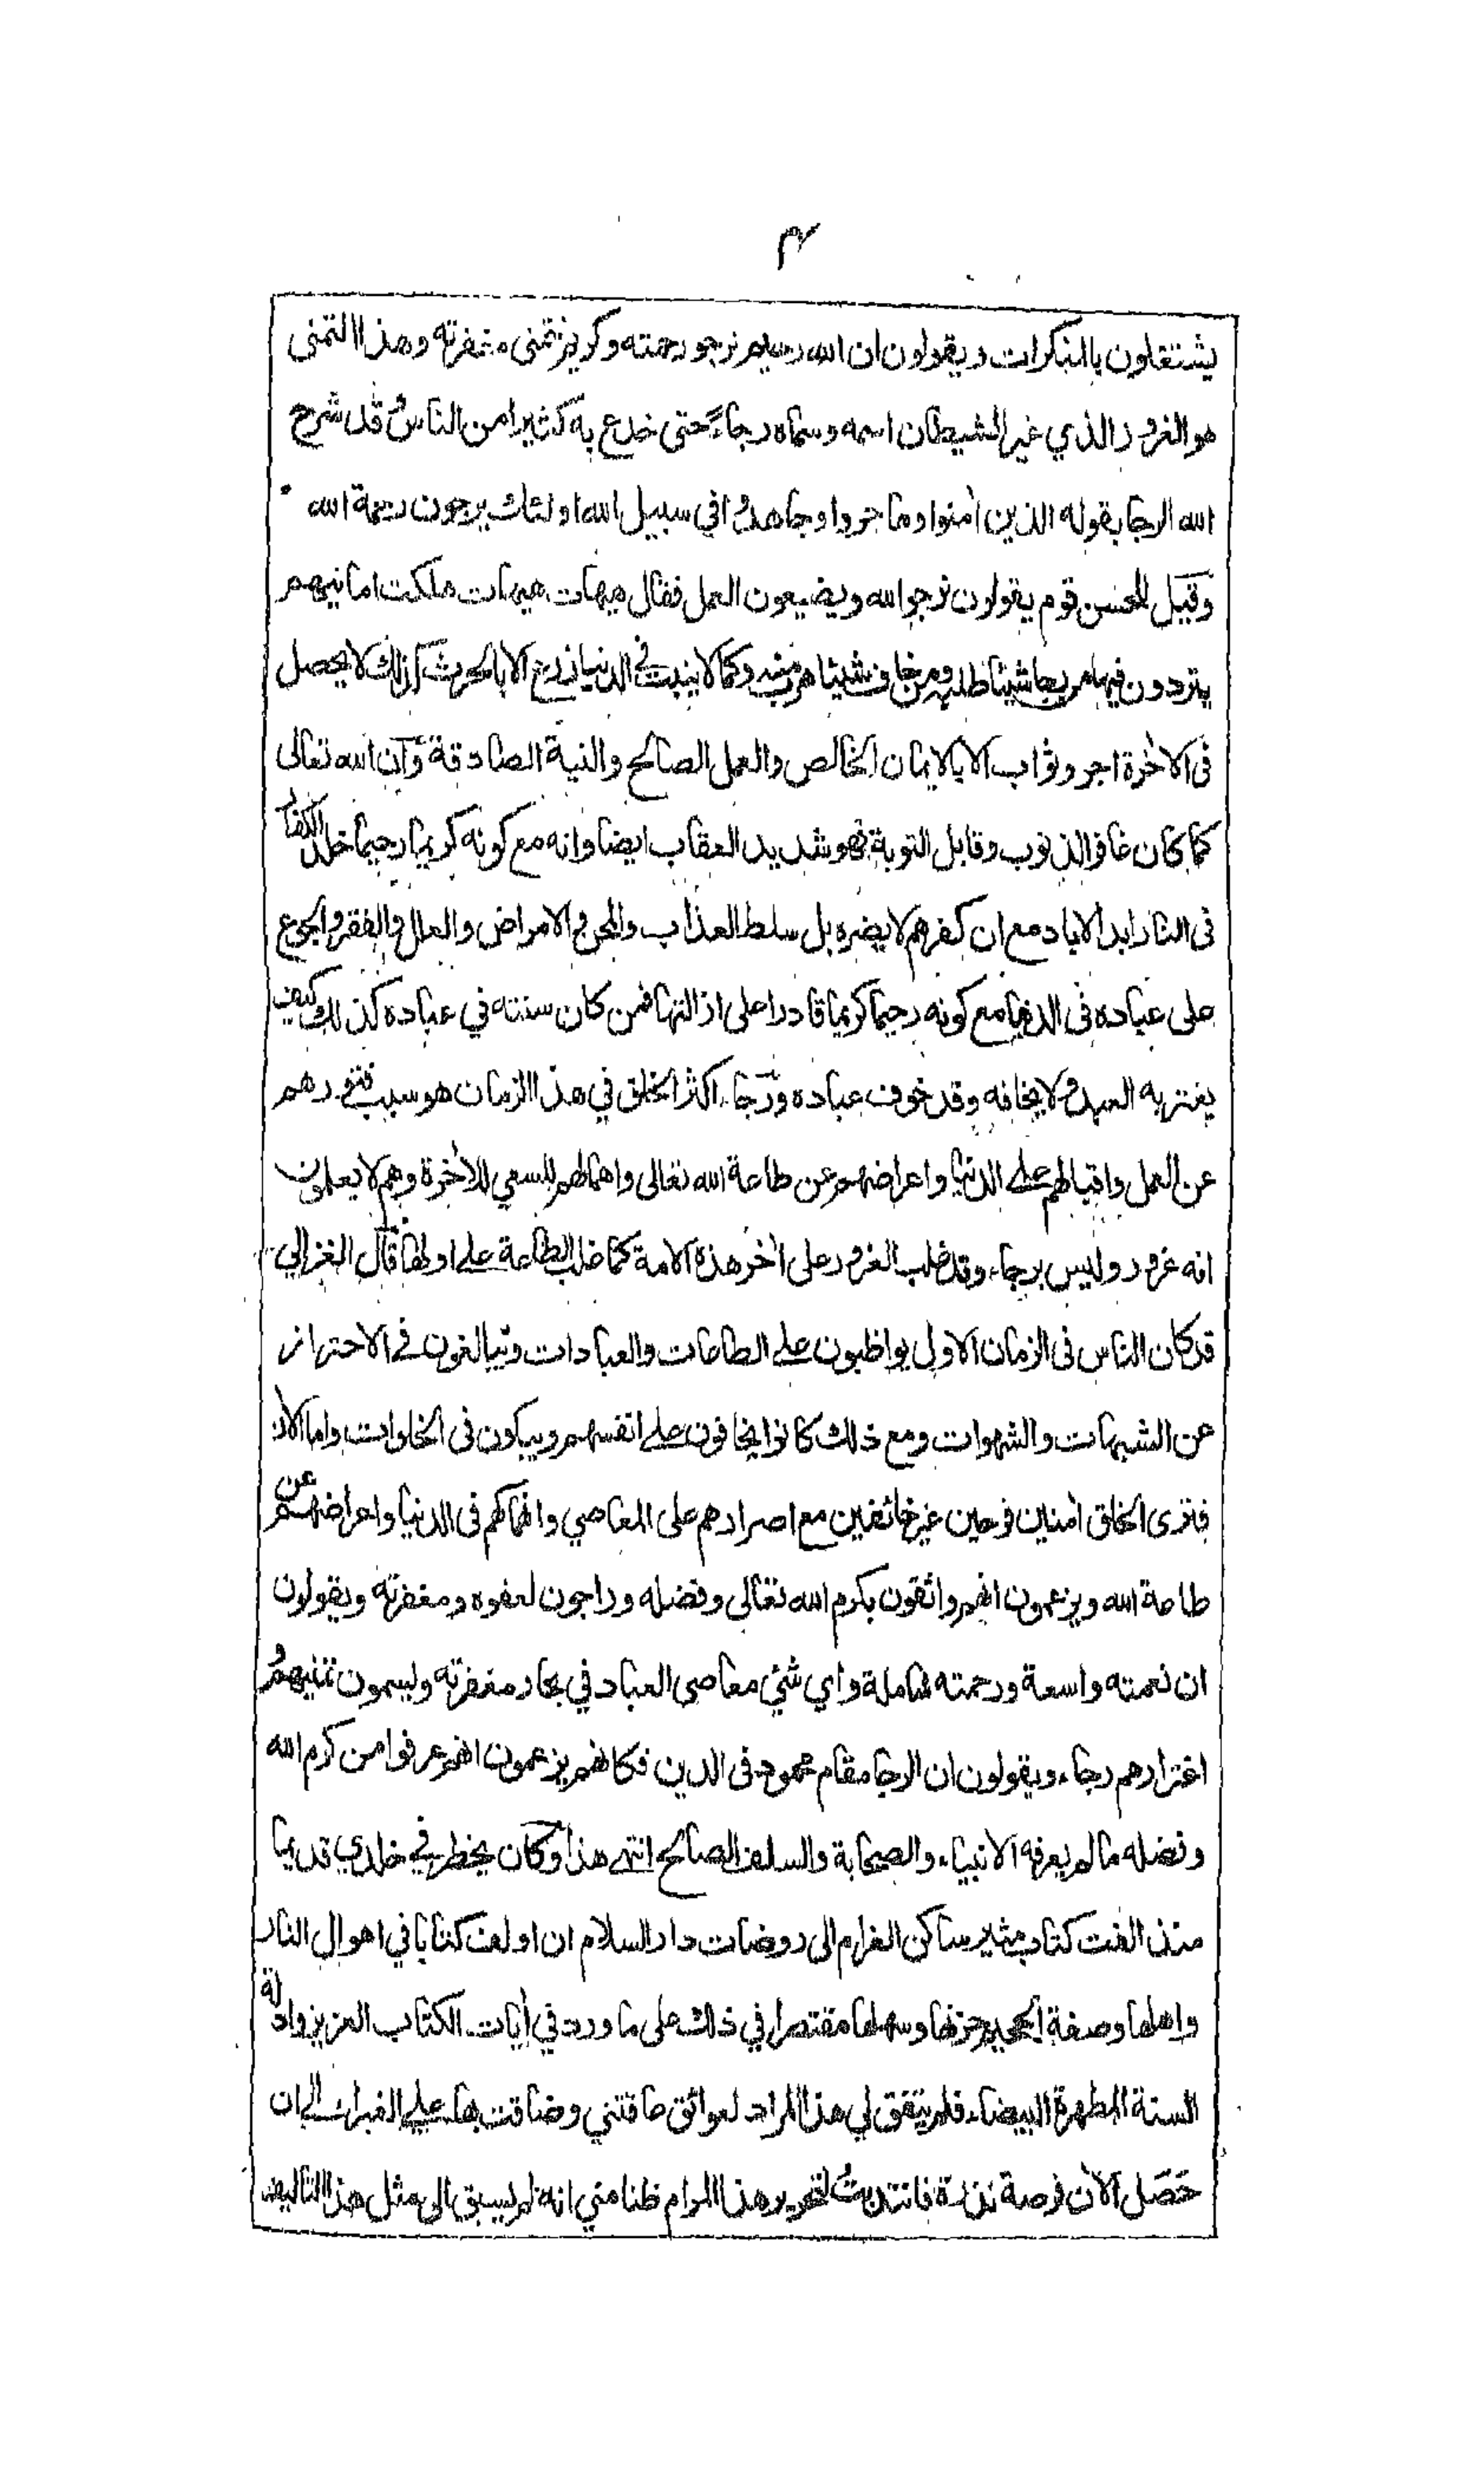 ٣
يشتغلون بالمنكرات ويقولون ان الله رحيم نرجو رحمته وكريم نتمنى مغفرته وهذا التمنى
هو الغرور الذي غير الشيطان اسمه وسماه رجاءً حتى خدع به كثيرا من الناس وقد شرح
الله الرجا بقوله الذين اٰمنوا وهاجروا وجاهدوا في سبيل الله اولئك يرجون رحمة الله
وقيل للحسن قوم يقولون نرجو الله ويضيعون العمل فقال هيهات هيهات هلكت امانيهم
يترددون فيها من رجا شيئا طلبه ومن خاف شيئا هرب منه وكما لا ينبت في الدنيا زرع الا بالحرث كذلك لا يحصل
فى الاٰخرة اجر وثواب الا بالايمان الخالص والعمل الصالح والنية الصادقة وان الله تعالى
كما كان غافر الذنوب وقابل التوبة فهو شديد العقاب ايضا وانه مع كونه كريما رحيما خلد الكفار
فى النار ابد الاباد مع ان كفرهم لا يضره بل سلط العذاب والمحن والامراض والعلل والفقر والجوع
على عباده فى الدنيا مع كونه رحيما كريما قادرا على ازالتها فمن كان سنته في عباده كذلك كيف
يغتر به العبد ولا يخافه وقد خوف عباده ورجاء اكثر الخلق في هذا الزمان هو سبب فتورهم
عن العمل واقبالهم على الدنيا واعراضهم عن طاعة الله تعالى واهمالهم للسعي للاٰخرة وهم لا يعلمون
انه غرور وليس برجاء وقد غلب الغرور على اٰخر هذه الامة كما غلب الطاعة على اولها قال الغزالي
قد كان الناس فى الزمان الاول يواظبون على الطاعات والعبادات ويبالغون في الاحتراز
عن الشبهات والشهوات ومع ذلك كانوا يخافون على انفسهم ويبكون فى الخلوات واما الاٰن
فترى الخلق اٰمنين فرحين غير خائفين مع اصرارهم على المعاصي وانهماكهم فى الدنيا واعراضهم عن
طاعة الله ويزعمون انهم واثقون بكرم الله تعالى وفضله وراجون لعفوه ومغفرته ويقولون
ان نعمته واسعة ورحمته شاملة واي شئ معاصى العباد في بحار مغفرته ويسمون تمنيهم و
اغترارهم رجاء ويقولون ان الرجا مقام محمود فى الدين فكانهم يزعمون انهم عرفوا من كرم الله
وفضله ما لم يعرفه الانبياء والصحابة والسلف الصالح انتهى هذا وكان يخطر في خلدي قديما
منذ الفت كتاب مثير ساكن الغرام الى روضات دار السلام ان اولف كتابا في اهوال النار
واهلها وصفة الجحيم وحزنها وسهلها مقتصرا في ذلك على ما ورد في اٰيات الكتاب العزيز وادلة
السنة المطهرة البيضاء فلم يتفق لي هذا المراد لعوائق عاقتني وضاقت بها على الغبراء الى ان
حَصَل الاٰن فرصة نزرة فانتدبتُ لتحرير هذا المرام ظنا مني انه لم يسبق الى مثل هذا التاليف